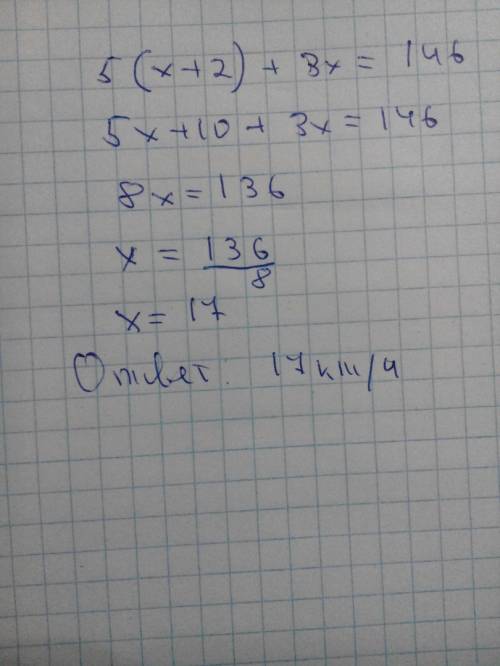 5(x+2) + 3x = 146
5x+10 + 3x = 146
8x = 136
x = 136/8
x = 17
Ответ: 17 км/ч